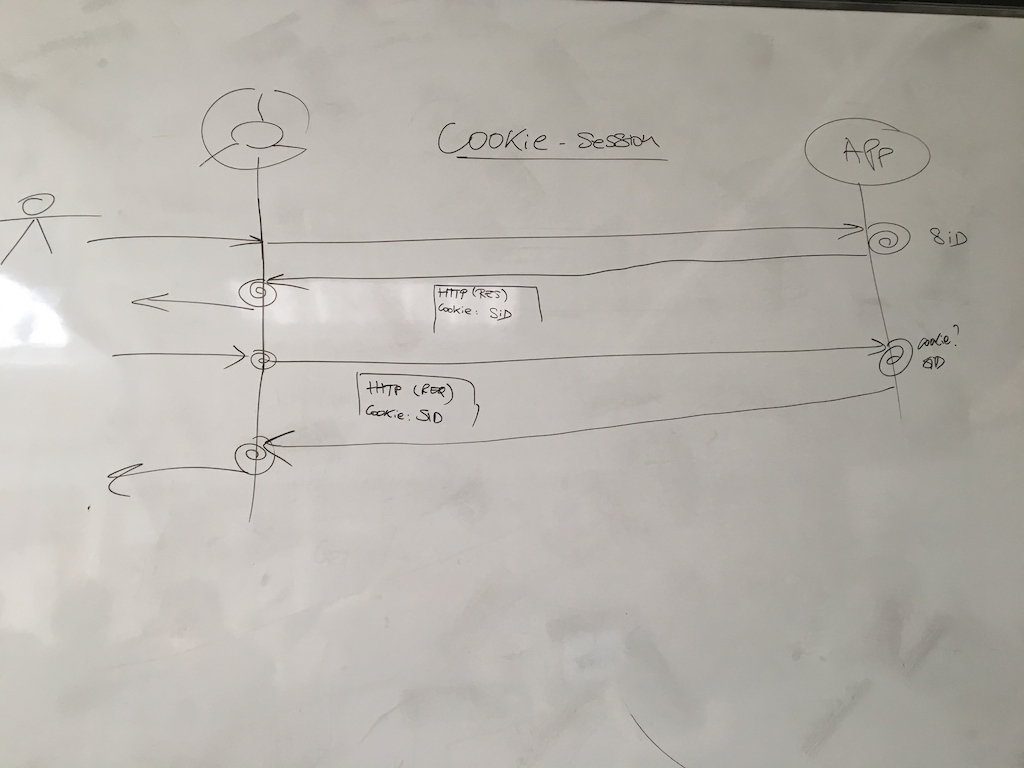 Cookie - Session
App
SiD
HTTP (RES)
Cookie: SiD
cookie?
SiD
HTTP (REQ)
Cookie: SiD